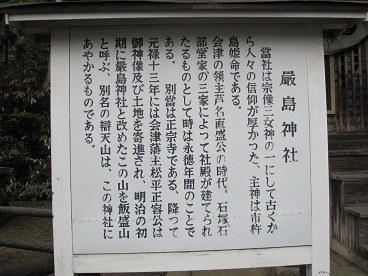 厳島神社
當社は宗像三女神の一にして古くか
ら人々の信仰が厚かった、主神は市杵
島姫命である。
会津の領主芦名直盛公の時代、石塚石
部堂家の三家によって社殿が建てられ
たるものとして時は永徳年間のことで
ある。 別當は正宗寺である、降って
元禄十三年には会津藩主松平正容公は
御神像及び土地を寄進され、明治の初
期に厳島神社と改めたこの山を飯盛山
と呼ぶ、別名の辯天山は、この神社に
あやかるものである。